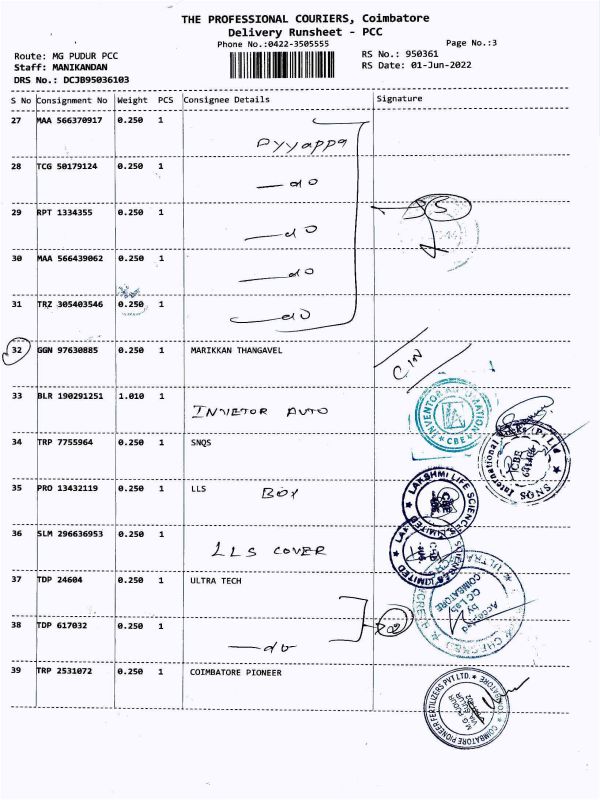 THE PROFESSIONAL COURIERS, Coimbatore
Delivery Runsheet - PCC
Phone No.:0422-3505555
Page No.:3
Route: MG PUDUR PCC
RS No.: 950361
Staff: MANIKANDAN
RS Date: 01-Jun-2022
DRS No.: DCJB95036103
S No Consignment No Weight PCS Consignee Details Signature
27 MAA 566370917 0.250 1
Ayyappa
28 TCG 50179124 0.250 1
do
29 RPT 1334355 0.250 1
do
30 MAA 566439062 0.250 1
do
31 TRZ 305403546 0.250 1
do
32 GGN 97630885 0.250 1 MARIKKAN THANGAVEL
33 BLR 190291251 1.010 1
INVETOR AUTO
INVENTOR AUTOMATION
CBE
34 TRP 7755964 0.250 1 SNQS
SNQS International
CBE
35 PRO 13432119 0.250 1 LLS
BOX
LAKSHMI LIFE SCIENCES LIMITED
36 SLM 296636953 0.250 1
LLS COVER
37 TDP 24604 0.250 1 ULTRA TECH
Accepted
by
QC Lab
COIMBATORE
38 TDP 617032 0.250 1
do
39 TRP 2531072 0.250 1 COIMBATORE PIONEER
COIMBATORE PIONEER FERTILIZERS PVT LTD.
M.G. PUDUR